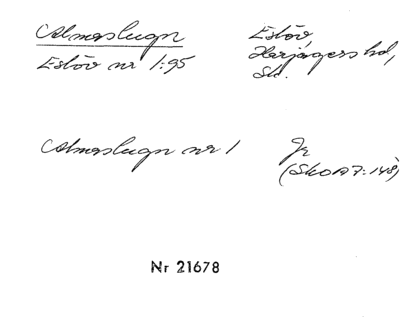 Almaslugn Eslöv
Eslöv nr 1:95 Harjagers hd,
Sk.
Almaslugn nr 1 Jr
(SkOA 7:148)
Nr 21678